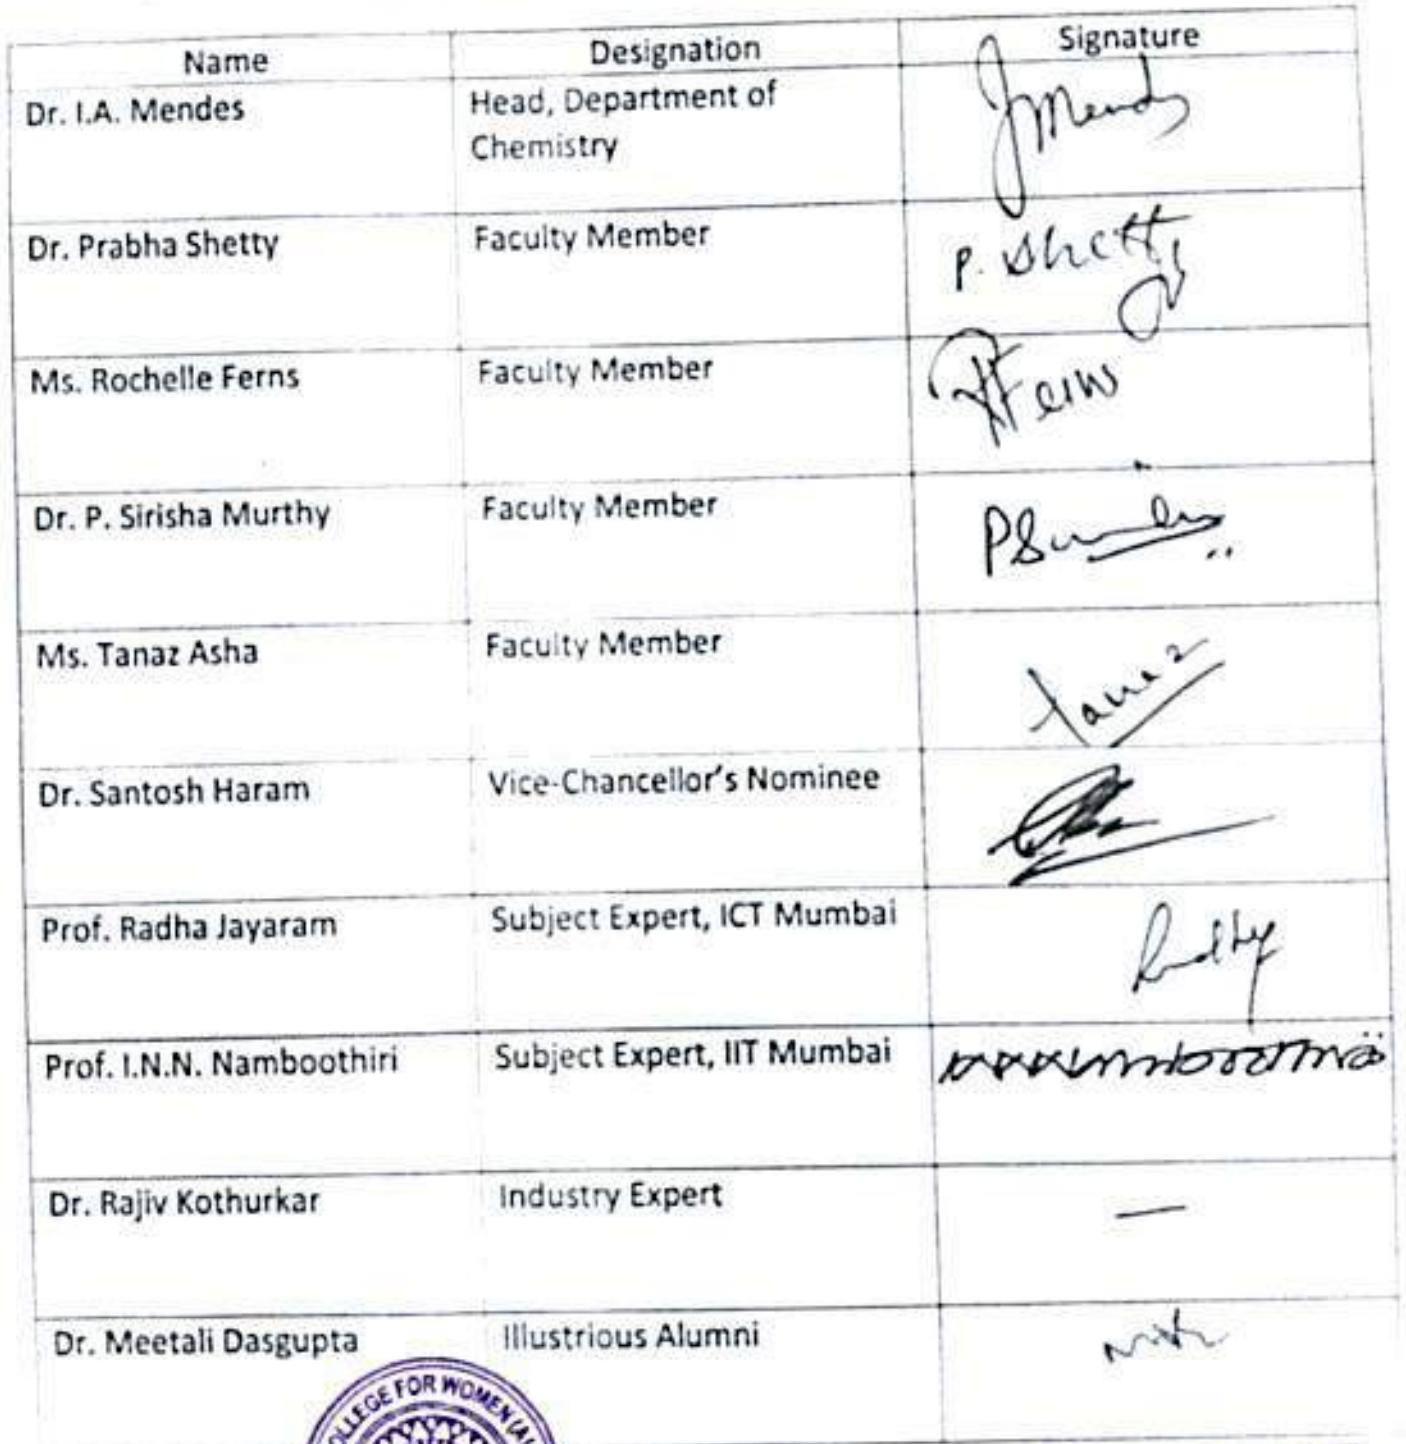 Name Designation Signature
Dr. I.A. Mendes Head, Department of
Chemistry
JMendes
Dr. Prabha Shetty Faculty Member P. Shetty
Ms. Rochelle Ferns Faculty Member RFerns
Dr. P. Sirisha Murthy Faculty Member
Ms. Tanaz Asha Faculty Member Tanaz
Dr. Santosh Haram Vice-Chancellor's Nominee
Prof. Radha Jayaram Subject Expert, ICT Mumbai
Prof. I.N.N. Namboothiri Subject Expert, IIT Mumbai
Dr. Rajiv Kothurkar Industry Expert —
Dr. Meetali Dasgupta Illustrious Alumni
OLLEGE FOR WOMEN (AU